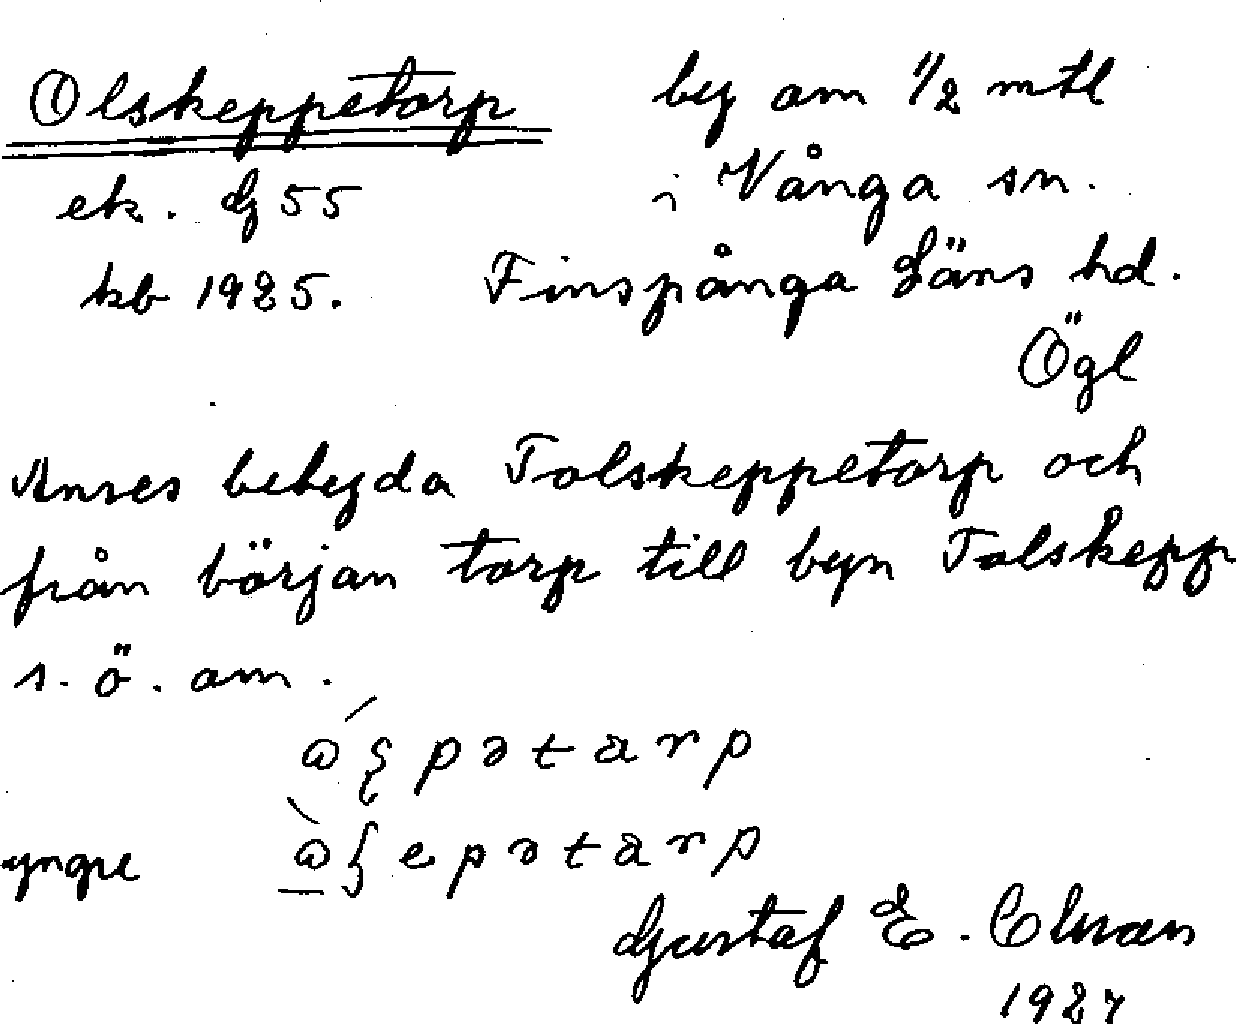 Olskeppetorp by om 1/2 mtl
ek. G 55 i Vånga sn.
kb 1925. Finspånga Läns hd.
Ögl
Anses betyda Tolskeppetorp och
från början torp till byn Tolskepp
s. ö. om.
yngre
Gustaf E.
1927